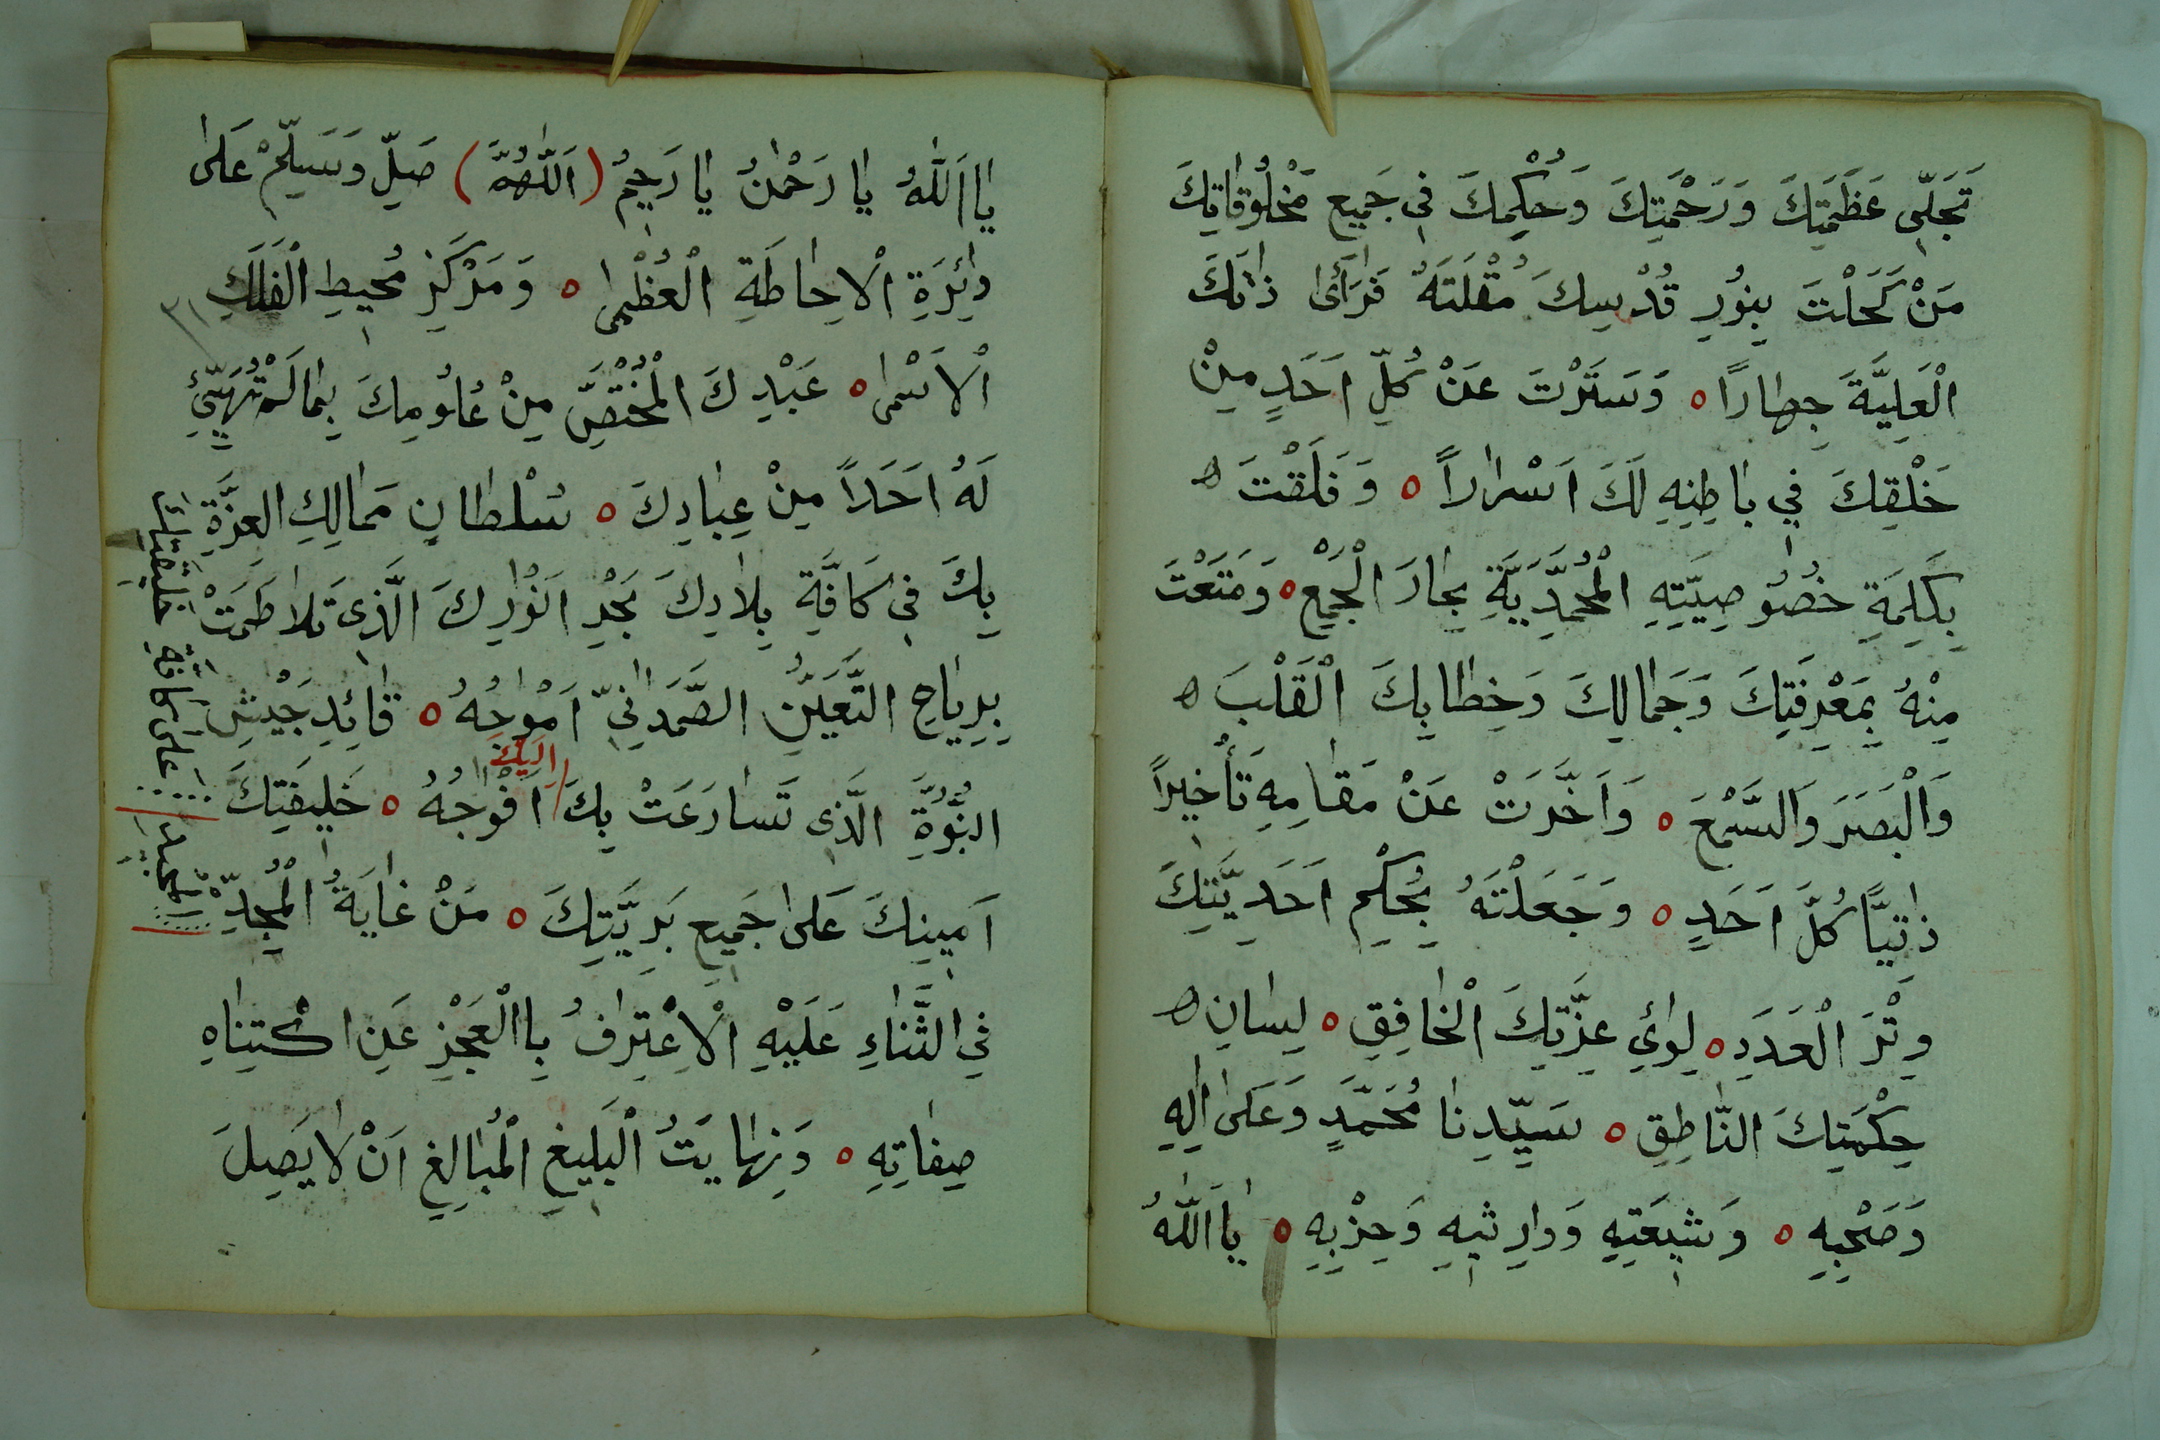 تَجَلِّي عَظَمَتِكَ وَرَحْمَتِكَ وَحُكْمِكَ فِي جَمِيعِ مَخْلُوقَاتِكَ
مَنْ كَحَلْتَ بِنُورِ قُدْسِكَ مُقْلَتَهُ فَرَأَىٰ ذَاتَكَ
الْعَلِيَّةَ جِهَارًا ه وَسَتَرْتَ عَنْ كُلِّ اَحَدٍ مِنْ
خَلْقِكَ فِي بَاطِنِهِ لَكَ اَسْرَارًا ه وَفَلَقْتَ ه
بِكَلِمَةِ خُصُوصِيَّتِهِ الْمُحَمَّدِيَّةِ بِحَارَ الْجَمْعِ ه وَمَتَّعْتَ
مِنْهُ بِمَعْرِفَتِكَ وَجَمَالِكَ وَخِطَابِكَ الْقَلْبَ ه
وَالْبَصَرَ وَالسَّمْعَ ه وَاَخَّرَتْ عَنْ مَقَامِهِ تَأْخِيرًا
ذَاتِيًّا كُلَّ اَحَدٍ ه وَجَعَلْتَهُ بِحُكْمِ اَحَدِيَّتِكَ
وِتْرَ الْعَدَدِ ه لِوَائِ عِزَّتِكَ الْخَافِقِ ه لِسَانِ ه
حِكْمَتِكَ النَّاطِقِ ه سَيِّدِنَا مُحَمَّدٍ وَعَلَىٰ اٰلِهِ
وَصَحْبِهِ ه وَشِيعَتِهِ وَوَارِثِيهِ وَحِزْبِهِ ه يَا اَللّٰهُ
يَا اَللّٰهُ يَا رَحْمٰنُ يَا رَحِيمُ (اَللّٰهُمَّ) صَلِّ وَسَلِّمْ عَلَىٰ
دَائِرَةِ الْاِحَاطَةِ الْعُظْمَىٰ ه وَمَرْكَزِ مُحِيطِ الْفَلَكِ
الْاَسْمَىٰ ه عَبْدِكَ الْمُخْتَصِّ مِنْ عُلُومِكَ بِمَا لَمْ تُهَيِّئْ
لَهُ اَحَدًا مِنْ عِبَادِكَ ه سُلْطَانِ مَمَالِكِ العِزَّةِ
بِكَ فِي كَافَّةِ بِلَادِكَ بَحْرِ اَنْوَارِكَ الَّذِي تَلَاطَمَتْ
بِرِيَاحِ التَّعَيُّنِ الصَّمَدَانِيِّ اَمْوَاجُهُ ه قَائِدِ جَيْشِ
النُّبُوَّةِ الَّذِي تَسَارَعَتْ بِكَ اِلَيْكَ اَفْوَاجُهُ ه خَلِيفَتِكَ
اَمِينِكَ عَلَىٰ جَمِيعِ بَرِيَّتِكَ ه مَنْ غَايَةُ الْمُجِدِّ
فِي الثَّنَاءِ عَلَيْهِ الْاِعْتِرَافُ بِاالْعَجْزِ عَنِ اكْتِنَاهِ
صِفَاتِهِ ه وَنِهَايَتُ الْبَلِيغِ الْمُبَالِغِ اَنْ لَا يَصِلَ
عَلَىٰ كَافَّةِ خَلِيقَتِكَ